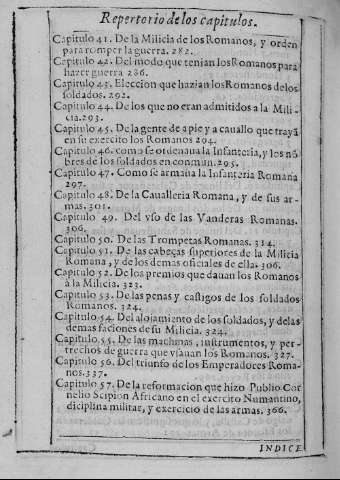 Repertorio de los capitulos.
Capitulo 41. De la Milicia de los Romanos, y orden
para romper la guerra. 282.
Capitulo 42. Del modo que tenian los Romanos para
hazer guerra 286.
Capitulo 43. Eleccion que hazian los Romanos de los
soldados. 292.
Capitulo 44. De los que no eran admitidos a la Mili-
cia. 293.
Capitulo 45. De la gente de a pie y a cauallo que trayã
en su exercito los Romanos 294.
Capitulo 46. como se ordenaua la Infanteria, y los nõ
bres de los soldados en comun. 295.
Capitulo 47. Como se armaua la Infanteria Romana
297.
Capitulo 48. De la Caualleria Romana, y de sus ar-
mas. 301.
Capitulo 49. Del vso de las Vanderas Romanas.
306.
Capitulo 50. De las Trompetas Romanas. 314.
Capitulo 51. De las cabeças superiores de la Milicia
Romana, y de los demas oficiales de ella. 306.
Capitulo 52. De los premios que dauan los Romanos
à la Milicia. 323.
Capitulo 53. De las penas y castigos de los soldados
Romanos. 324.
Capitulo 54. Del alojamiento de los soldados, y de las
demas faciones de su Milicia. 324.
Capitulo 55. De las machinas, instrumentos, y per-
trechos de guerra que vsauan los Romanos. 327.
Capitulo 56. Del triunfo de los Emperadores Roma-
nos. 337.
Capitulo 57. De la reformacion que hizo Publio Cor
nelio Scipion Africano en el exercito Numantino,
diciplina militar, y exercicio de las armas. 366.
INDICE